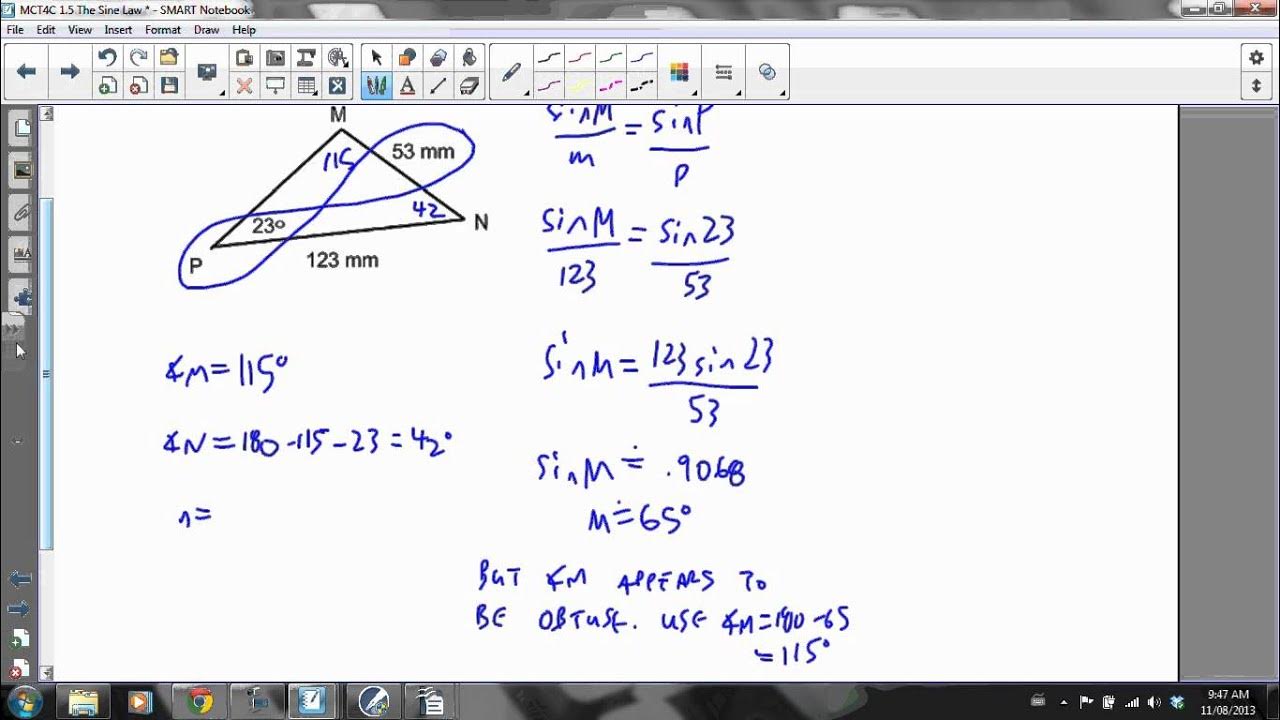 MCT4C 1.5 The Sine Law * - SMART Notebook
File Edit View Insert Format Draw Help
M
115
53 mm
23°
42
N
P
123 mm
sinM/m = sinP/p
sinM/123 = sin23/53
∡M = 115°
sinM = 123sin23/53
∡N = 180 - 115 - 23 = 42°
sinM ≐ .9068
n =
M ≐ 65°
BUT ∡M APPEARS TO
BE OBTUSE. USE ∡M = 180 - 65
= 115°
9:47 AM
11/08/2013